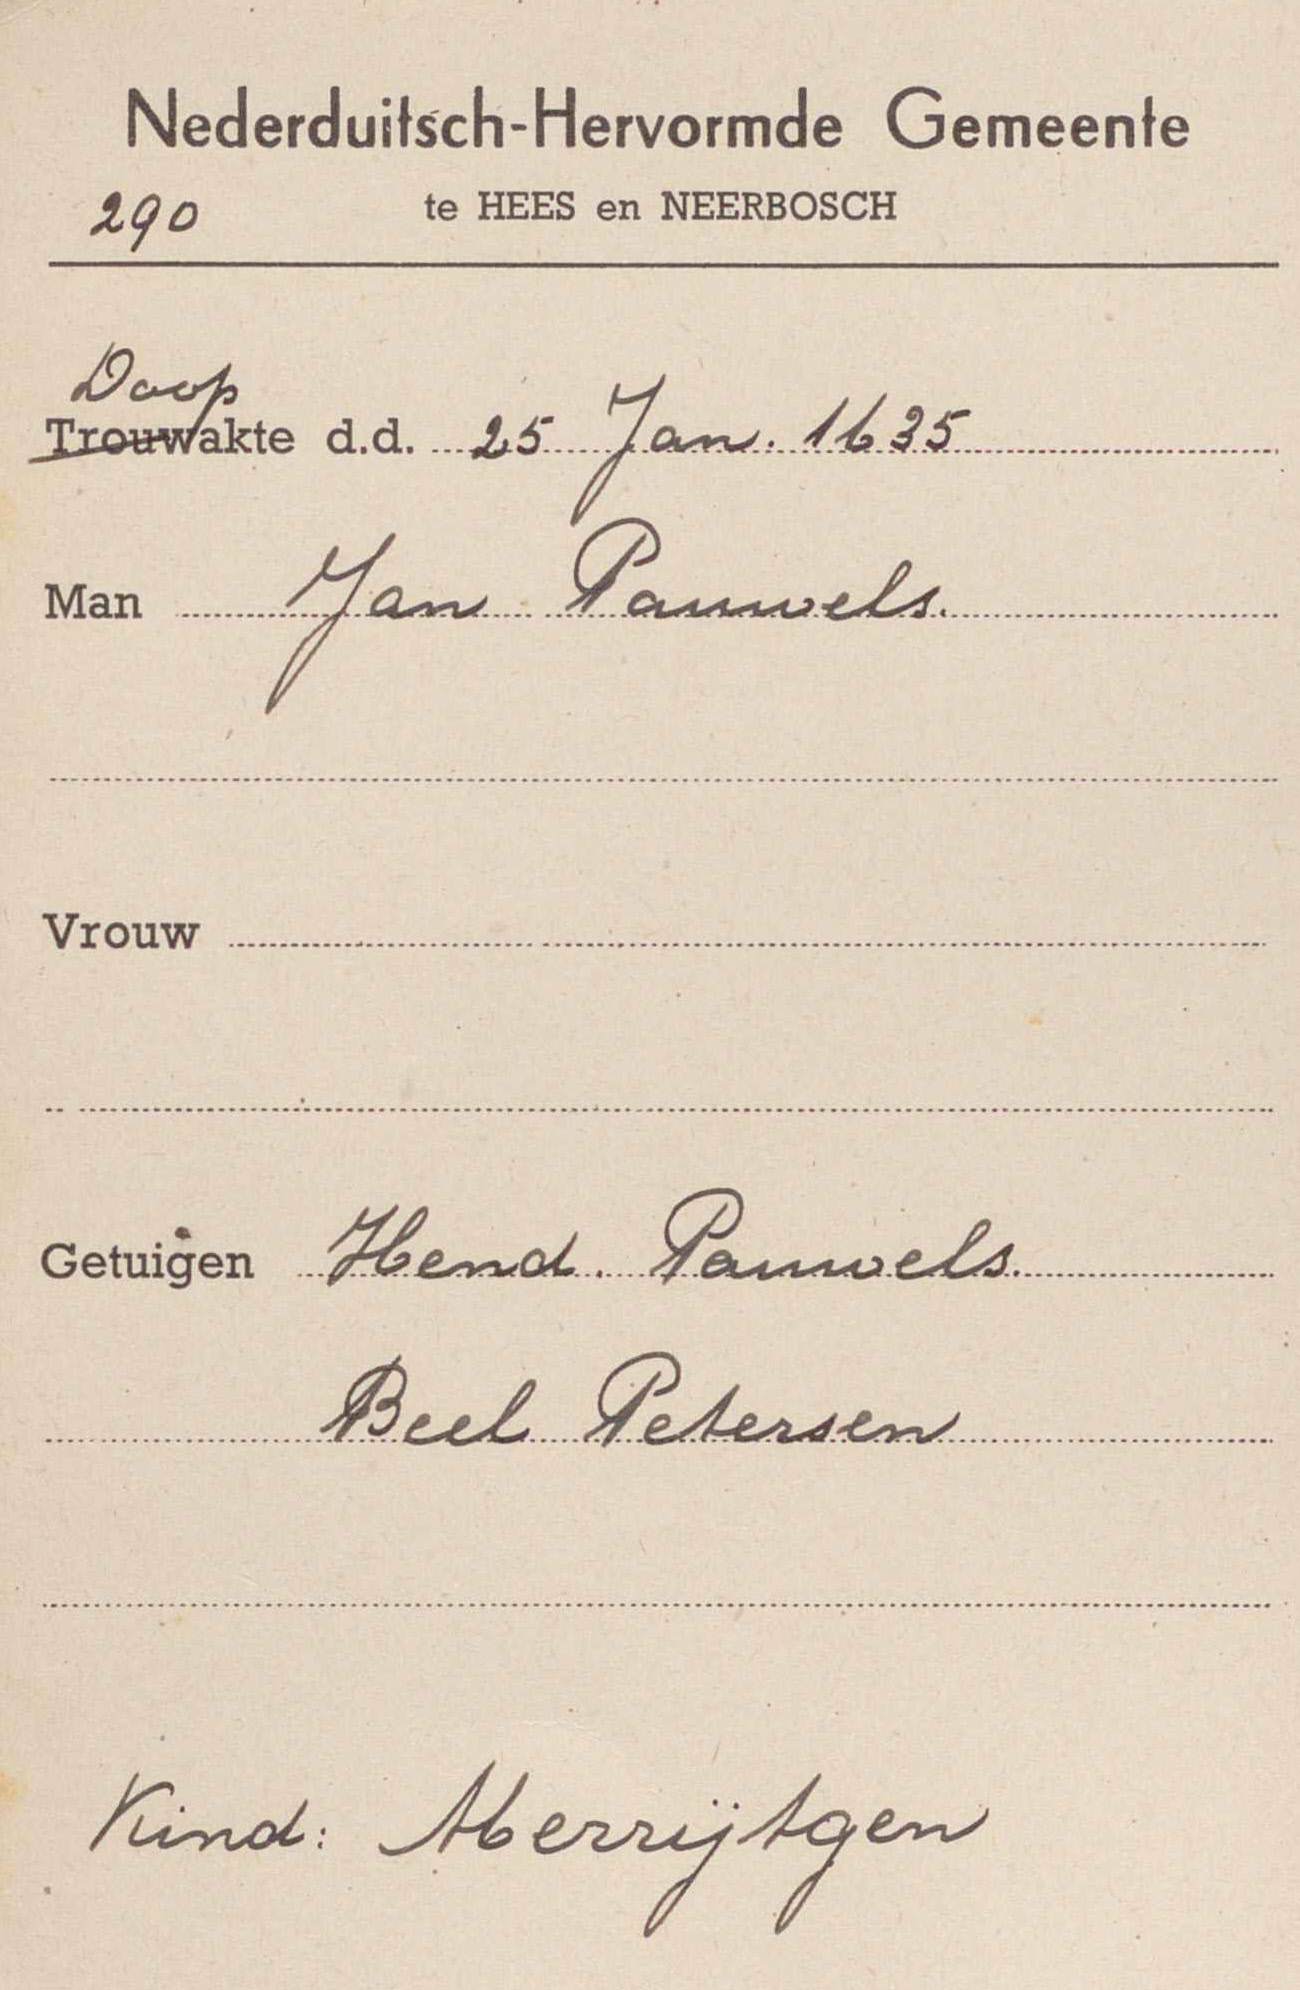 Nederduitsch-Hervormde Gemeente
290 te HEES en NEERBOSCH
Doop
Trouwakte d.d. 25 Jan. 1635
Man Jan Pauwels.
Vrouw
Getuigen Hend. Pauwels.
Beel Petersen
Kind: Merrijtgen